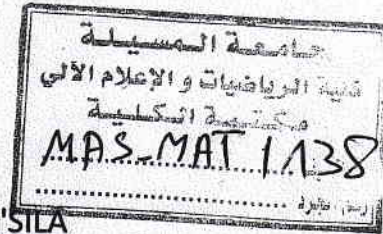 جامعة المسيلة
كلية الرياضيات و الإعلام الآلي
مكتبة الكلية
MAS_MAT / 138
'SILA